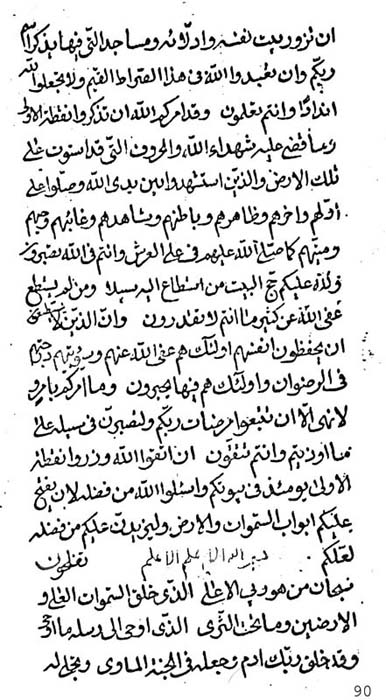 ان تزور بيت نفسه وادلائه ومساجد التى فيها يذكر اسم
ربكم وان تعبدوا الله فى هذا الصراط القيم ولا تجعلوا لله
اندادا وانتم تعلمون وقد امركم الله ان تذكروا نقطة الاولى
وما قضى عليه شهداء الله والحروف التى قد استوت على
تلك الارض والذين استشهدوا بين يدى الله وصلوا على
اولهم واخرهم وظاهرهم وباطنهم وشاهدهم وغائبهم وحيهم
وميتهم كما صلى الله عليهم فى على العرش وانتم فى الله تصبرون
ولله عليكم حج البيت من استطاع اليه سبيلا ومن لم يستطع
عفى الله عن كثير ما انتم لا تقدرون وان الذين لا
ان يحفظون انفسهم اولئك هم عفى الله عنهم
فى الرضوان واولئك هم فيها يحبرون وما امركم بامر و
لا نهى الا ان تتبعوا مرضات ربكم ولتصبرن فى سبله على
ما اوذيتم وانتم تتقون ان اتقوا الله وزروا نقطة
الاولى يومئذ فى بيوتكم واسئلوا الله من فضله لان يفتح
عليكم ابواب السموات والارض وليزيدن عليكم من فضله
لعلكم تفلحون
بسم الله الاعلم الاعلم
سبحان من هو ربى الاعلى الذى خلق السموات العلى و
الارضين وما تحت الثرى الذى اوحى الى رسله ما اوحى
وقد خلق ربك ادم وجعله فى الجنة الماوى وتجلى له
90